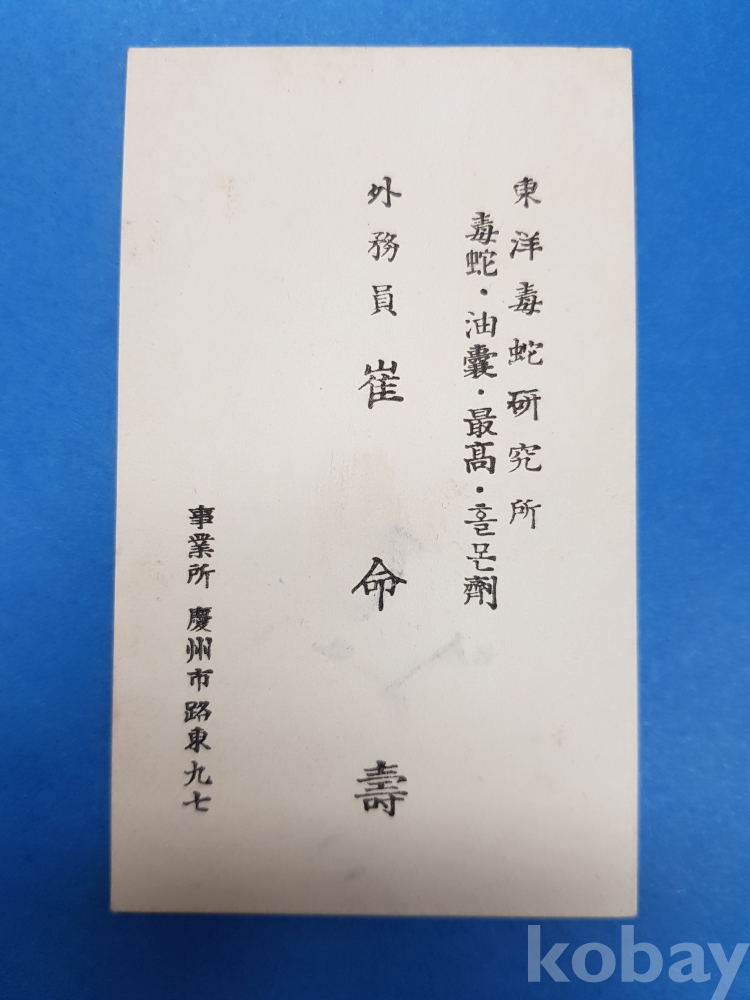 東洋毒蛇研究所
毒蛇·油囊·最高·홀몬劑
外務員 崔命壽
事業所 慶州市路東九七
kobay